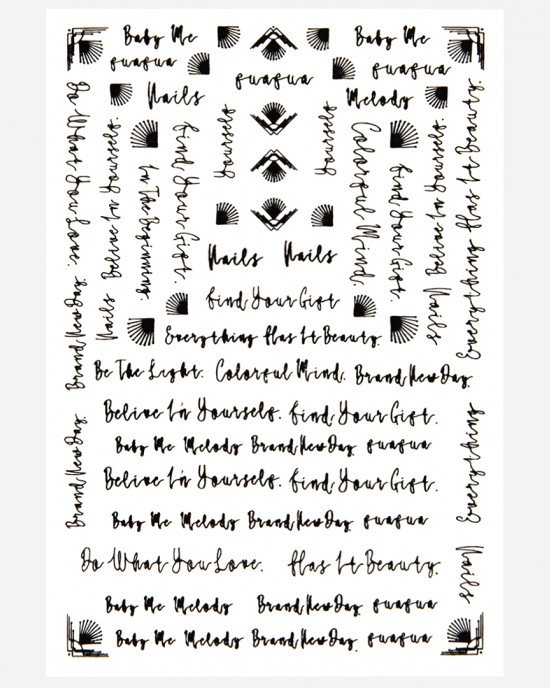 Baby Me
Baby Me
guagua
guagua
guagua
Nails
Melody
Do What You Love.
Believe In Yourself.
In The Beginning.
Find Your Gift.
Yourself
Yourself
Colorful Mind.
Find Your Gift.
Believe In Yourself.
Everything Has It Beauty.
Nails Nails
Nails
Nails
Brand New Day.
Find Your Gift
Everything Has It Beauty.
Be The Light. Colorful Mind. Brand New Day.
Believe In Yourself. Find Your Gift.
Baby Me Melody Brand New Day guagua
Believe In Yourself. Find Your Gift.
Baby Me Melody Brand New Day guagua
Brand New Day.
Everything
Do What You Love. Has It Beauty.
Nails
Baby Me Melody Brand New Day guagua
Baby Me Melody Brand New Day guagua